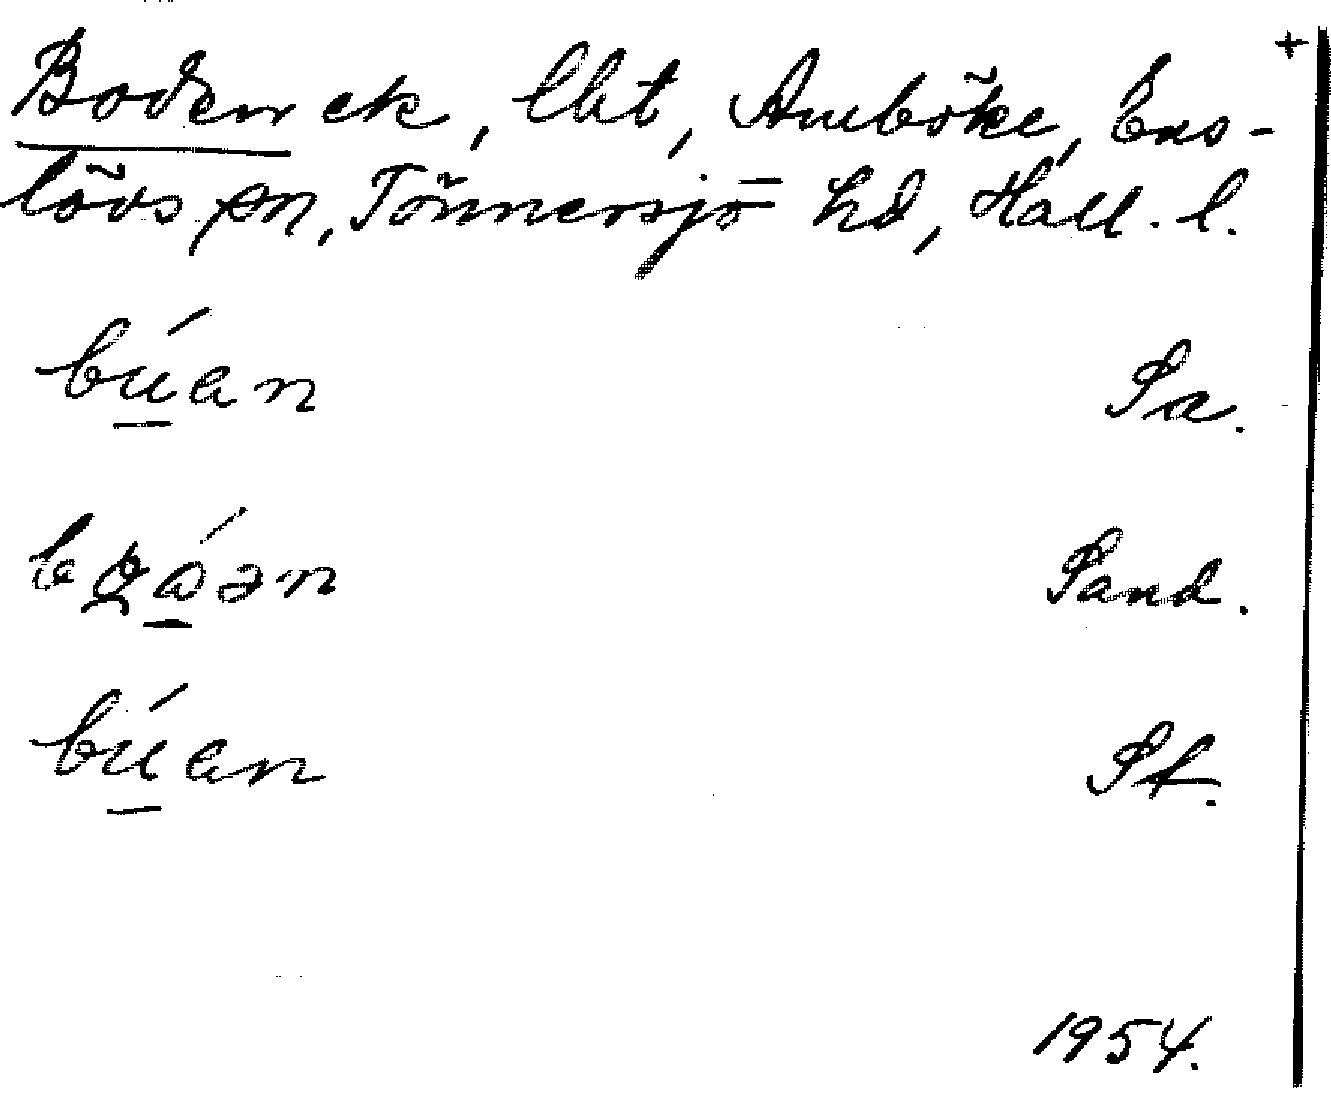 Boden ek, lht, Amböke, Ens- +
lövs sn, Tönnersjö hd, Hall. l.
búan Sa.
Sand.
búan St.
1954.